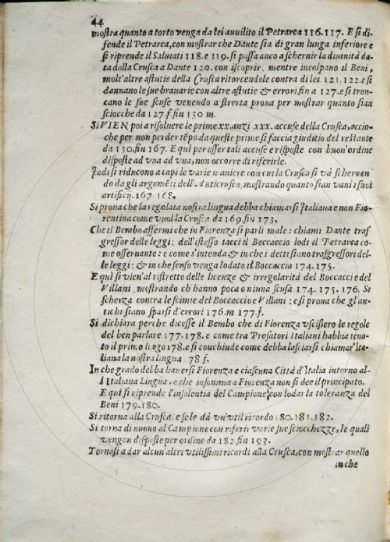 44
mostra quanto a torto venga da lei auuilito il Petrarca 116.117. E si di-
fende il Petrarca, con mostrar che Dante sia di gran lunga inferiore e
si riprende il Saluiati 118.e 119. si passa anco a schernir la diuinità da-
ta dalla Crusca a Dante 120. con iscoprir. mentre incolpano il Beni,
molt'altre astutie della Crusca ritorcendole contra di lei. 121.122.e si
dannano le sue brauarie con altre astutie & errori fin a 127.e si tron-
cano le sue scuse venendo a stretta proua per mostrar quanto sian
sciocche da 127.f fin 130 m.
Si VIEN poi a risoluere le prime xx.anzi xxx. accuse della Crusca, accio-
che per non perder tēpo da queste prime si faccia giuditio del restante
da 130.fin 167. E qui per esser tali accuse e risposte con buon'ordine
disposte ad vna ad vna, non occorre di riferirle.
Indi si riducono a capi le varie maniere con cui la Crusca si và schernen-
do dagli argomēti dell'Anticrusca, mostrando quanto sian vani i suoi
artificij. 167.168.
Si proua che la regolata nostra lingua debba chiamarsi Italiana e non Fio-
rentina come vuol la Crusca da 169.fin 173.
Che il Bembo affermi che in Fiorenza si parli male: chiami Dante tras-
gressor delle leggi: dell'istesso tacci il Boccaccio lodi il Petrarca co-
me osseruante: e come s'intenda & in che i detti siano trasgressori del-
le leggi: & in che senso venga lodato il Boccaccio 174.175.
E qui si vien'al ristretto delle licenze & irregolarità del Boccacci e del
Villani, mostrando ch'hanno poca o niuna scusa 174. 175. 176. Si
scherza contra le scimie del Boccacci e Villani: e si proua che gl'an-
tichi siano sparsi d'errori 176.m 177.f.
Si dichiara perche dicesse il Bembo che di Fiorenza vscissero le regole
del ben parlare 177.178. e come tra Prosatori Italiani habbia tenu-
to il primo luogo 178.e si conchiude come debba lasciarsi chiamar Ita-
liana la nostra lingua 178 f.
In che grado debba hauersi Fiorenza e ciascuna Città d'Italia intorno al-
l'Italiana Lingua. e che insomma a Fiorenza non si dee il principato.
E qui si riprende l'insolentia del Campione con lodar la toleranza del
Beni 179.180.
Si ritorna alla Crusca. e se le dà vn'vtil ricordo 180.181.182.
Si torna di nuouo al Campione con riferir varie sue sciocchezze, le quali
vengon disposte per ordine da 182.fin 193.
Tornasi a dar alcun'altri vtilissimi ricordi alla Crusca, con mostrar quello
in che